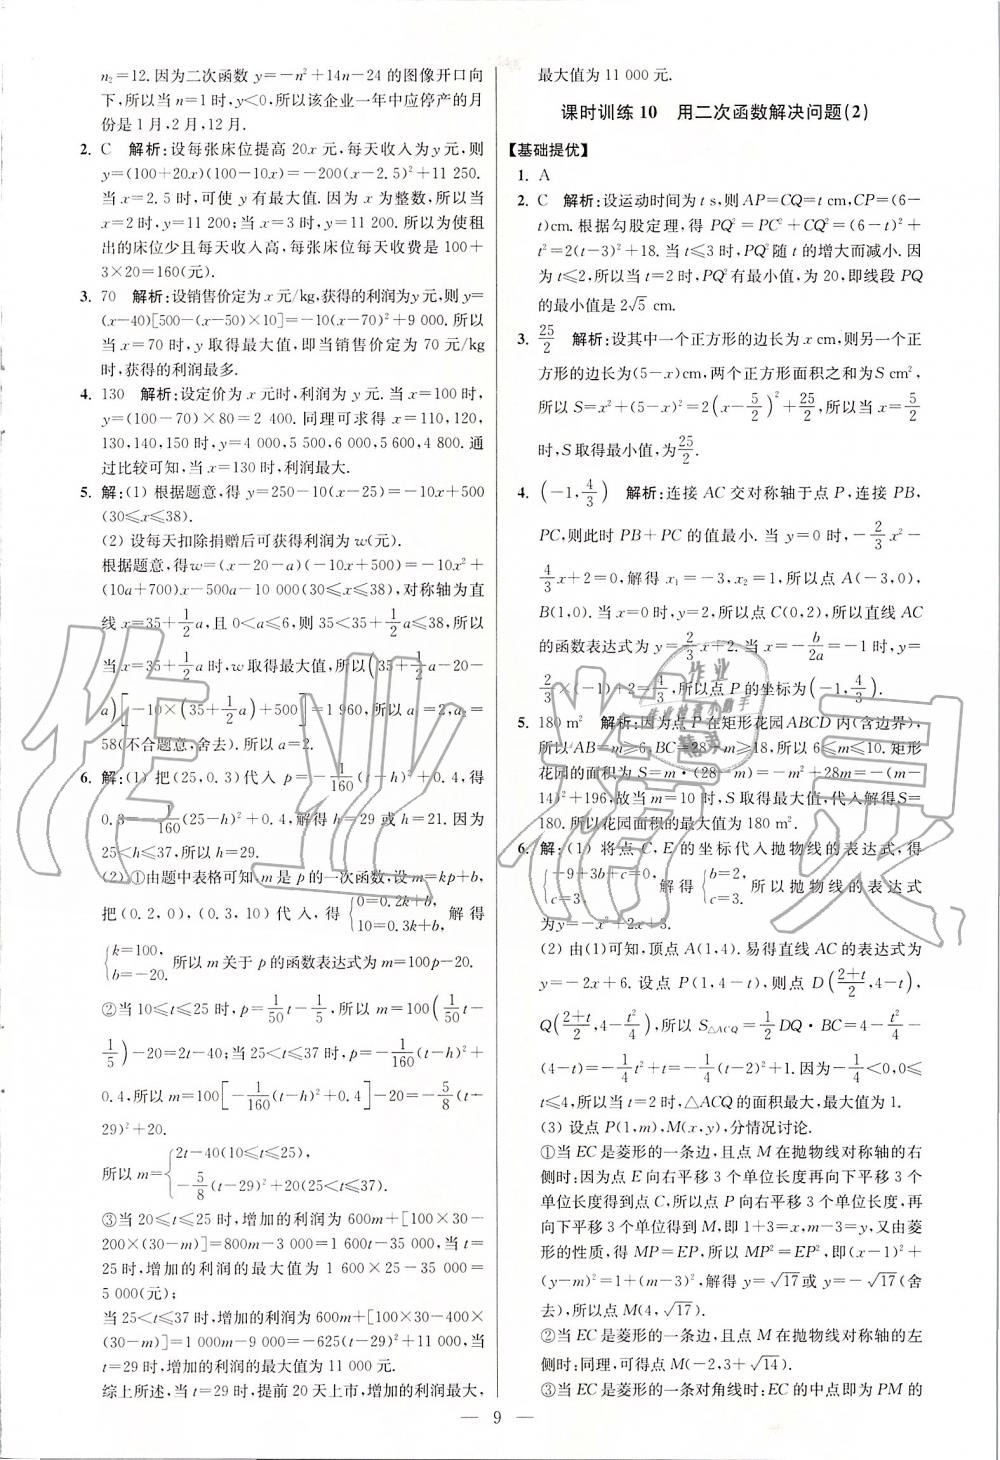 n₂=12. 因为二次函数 y=−n²+14n−24 的图像开口向
下,所以当 n=1 时,y<0,所以该企业一年中应停产的月
份是 1 月,2 月,12 月.
2. C 解析:设每张床位提高 20x 元,每天收入为 y 元,则
y=(100+20x)(100−10x)=−200(x−2.5)²+11 250.
当 x=2.5 时,可使 y 有最大值. 因为 x 为整数,所以当
x=2 时,y=11 200;当 x=3 时,y=11 200. 所以为使租
出的床位少且每天收入高,每张床位每天收费是 100+
3×20=160(元).
3. 70 解析:设销售价定为 x 元/kg,获得的利润为y元,则 y=
(x−40)[500−(x−50)×10]=−10(x−70)²+9 000. 所以
当 x=70 时,y 取得最大值,即当销售价定为 70 元/kg
时,获得的利润最多.
4. 130 解析:设定价为 x 元时,利润为 y 元. 当 x=100 时,
y=(100−70)×80=2 400. 同理可求得 x=110,120,
130,140,150 时,y=4 000,5 500,6 000,5 600,4 800. 通
过比较可知,当 x=130 时,利润最大.
5. 解:(1) 根据题意,得 y=250−10(x−25)=−10x+500
(30≤x≤38).
(2) 设每天扣除捐赠后可获得利润为 w(元).
根据题意,得w=(x−20−a)(−10x+500)=−10x²+
(10a+700)x−500a−10 000(30≤x≤38),对称轴为直
线 x=35+1/2a,且 0<a≤6,则 35<35+1/2a≤38,所以
当 x=35+1/2a 时,w 取得最大值,所以(35+1/2a−20−
a)[−10×(35+1/2a)+500]=1 960,所以 a₁=2,a₂=
58(不合题意,舍去). 所以 a=2.
6. 解:(1) 把(25,0.3)代入 p=−1/160(t−h)²+0.4,得
0.3=−1/160(25−h)²+0.4,解得 h=29 或 h=21. 因为
25<h≤37,所以 h=29.
(2) ①由题中表格可知 m 是 p 的一次函数,设 m=kp+b,
把(0.2,0),(0.3,10)代入,得{0=0.2k+b, 10=0.3k+b,解得
{k=100, b=−20. 所以 m 关于 p 的函数表达式为 m=100p−20.
②当 10≤t≤25 时,p=1/50t−1/5,所以 m=100(1/50t−
1/5)−20=2t−40;当 25<t≤37 时,p=−1/160(t−h)²+
0.4,所以 m=100[−1/160(t−h)²+0.4]−20=−5/8(t−
29)²+20.
所以 m={2t−40(10≤t≤25), −5/8(t−29)²+20(25<t≤37).
③当 20≤t≤25 时,增加的利润为 600m+[100×30−
200×(30−m)]=800m−3 000=1 600t−35 000,当 t=
25 时,增加的利润的最大值为 1 600×25−35 000=
5 000(元);
当 25<t≤37 时,增加的利润为 600m+[100×30−400×
(30−m)]=1 000m−9 000=−625(t−29)²+11 000,当
t=29 时,增加的利润的最大值为 11 000 元.
综上所述,当 t=29 时,提前 20 天上市,增加的利润最大,
最大值为 11 000 元.
课时训练 10 用二次函数解决问题(2)
【基础提优】
1. A
2. C 解析:设运动时间为 t s,则 AP=CQ=t cm,CP=(6−
t)cm. 根据勾股定理,得 PQ²=PC²+CQ²=(6−t)²+
t²=2(t−3)²+18. 当 t≤3 时,PQ²随 t 的增大而减小. 因
为 t≤2,所以当 t=2 时,PQ²有最小值,为 20,即线段 PQ
的最小值是 2√5 cm.
3. 25/2 解析:设其中一个正方形的边长为 x cm,则另一个正
方形的边长为(5−x)cm,两个正方形面积之和为S cm²,
所以 S=x²+(5−x)²=2(x−5/2)²+25/2,所以当 x=5/2
时,S 取得最小值,为25/2.
4. (−1,4/3) 解析:连接 AC 交对称轴于点 P,连接 PB,
PC,则此时 PB+PC 的值最小. 当 y=0 时,−2/3x²−
4/3x+2=0,解得 x₁=−3,x₂=1,所以点 A(−3,0),
B(1,0). 当 x=0 时,y=2,所以点 C(0,2),所以直线 AC
的函数表达式为 y=2/3x+2. 当 x=−b/2a=−1 时,y=
2/3×(−1)+2=4/3,所以点 P 的坐标为(−1,4/3).
5. 180 m² 解析:因为点 P 在矩形花园ABCD内(含边界),
所以 AB=m≥6,BC=28−m≥18,所以 6≤m≤10. 矩形
花园的面积为 S=m·(28−m)=−m²+28m=−(m−
14)²+196,故当 m=10 时,S 取得最大值,代入解得S=
180. 所以花园面积的最大值为 180 m².
6. 解:(1) 将点 C,E 的坐标代入抛物线的表达式,得
{−9+3b+c=0, c=3, 解得 {b=2, c=3. 所以抛物线的表达式
y=−x²+2x+3.
(2) 由(1)可知,顶点 A(1,4). 易得直线 AC 的表达式为
y=−2x+6. 设点 P(1,4−t),则点 D((2+t)/2,4−t),
Q((2+t)/2,4−t²/4),所以 S△ACQ=1/2DQ·BC=4−t²/4−
(4−t)=−1/4t²+t=−1/4(t−2)²+1. 因为−1/4<0,0≤
t≤4,所以当 t=2 时,△ACQ 的面积最大,最大值为 1.
(3) 设点 P(1,m),M(x,y),分情况讨论.
①当 EC 是菱形的一条边,且点 M 在抛物线对称轴的右
侧时:因为点 E 向右平移 3 个单位长度再向下平移 3 个
单位长度得到点 C,所以点 P 向右平移 3 个单位长度,再
向下平移 3 个单位得到 M,即 1+3=x,m−3=y,又由菱
形的性质,得 MP=EP,所以 MP²=EP²,即(x−1)²+
(y−m)²=1+(m−3)²,解得 y=√17或 y=−√17(舍
去),所以点 M(4,√17).
②当 EC 是菱形的一条边,且点 M 在抛物线对称轴的左
侧时:同理,可得点 M(−2,3+√14).
③当 EC 是菱形的一条对角线时:EC 的中点即为 PM 的
— 9 —
作业精灵
作业精灵